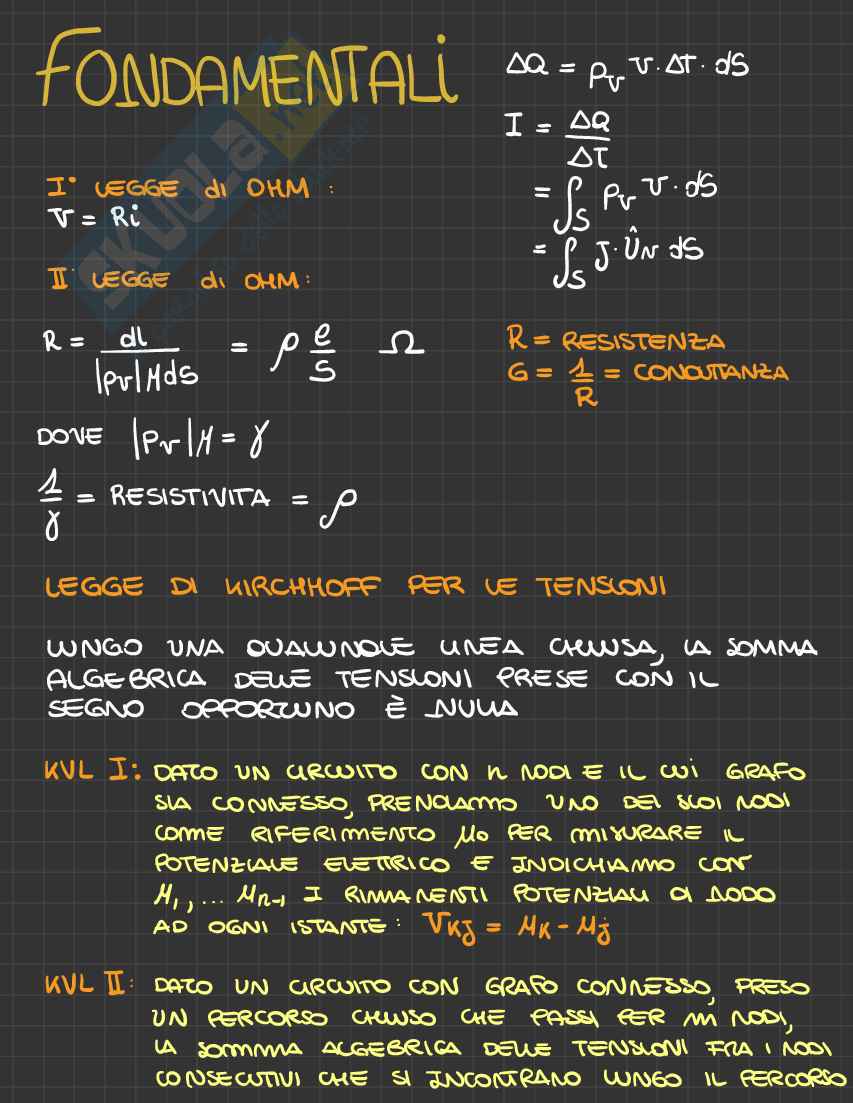 FONDAMENTALI
ΔQ = ρv v · ΔT · dS
I = ΔQ / ΔT
= ∫S ρv v · dS
= ∫S J · ûN dS
I° LEGGE di OHM :
v = Ri
II LEGGE di OHM:
R = dl / |ρv| μ dS = ρ l / S Ω
R = RESISTENZA
G = 1/R = CONDUTTANZA
DOVE |ρv| μ = γ
1/γ = RESISTIVITA = ρ
LEGGE DI KIRCHHOFF PER LE TENSIONI
LUNGO UNA QUALUNQUE LINEA CHIUSA, LA SOMMA
ALGEBRICA DELLE TENSIONI PRESE CON IL
SEGNO OPPORTUNO È NULLA
KVL I: DATO UN CIRCUITO CON n NODI E IL CUI GRAFO
SIA CONNESSO, PRENDIAMO UNO DEI SUOI NODI
COME RIFERIMENTO μ0 PER MISURARE IL
POTENZIALE ELETTRICO E INDICHIAMO CON
μ1, ... μn-1 I RIMANENTI POTENZIALI DI NODO
AD OGNI ISTANTE: vKJ = μK - μj
KVL II: DATO UN CIRCUITO CON GRAFO CONNESSO, PRESO
UN PERCORSO CHIUSO CHE PASSI PER m NODI,
LA SOMMMA ALGEBRICA DELLE TENSIONI FRA I NODI
CONSECUTIVI CHE SI INCONTRANO LUNGO IL PERCORSO
SKUOLA.net